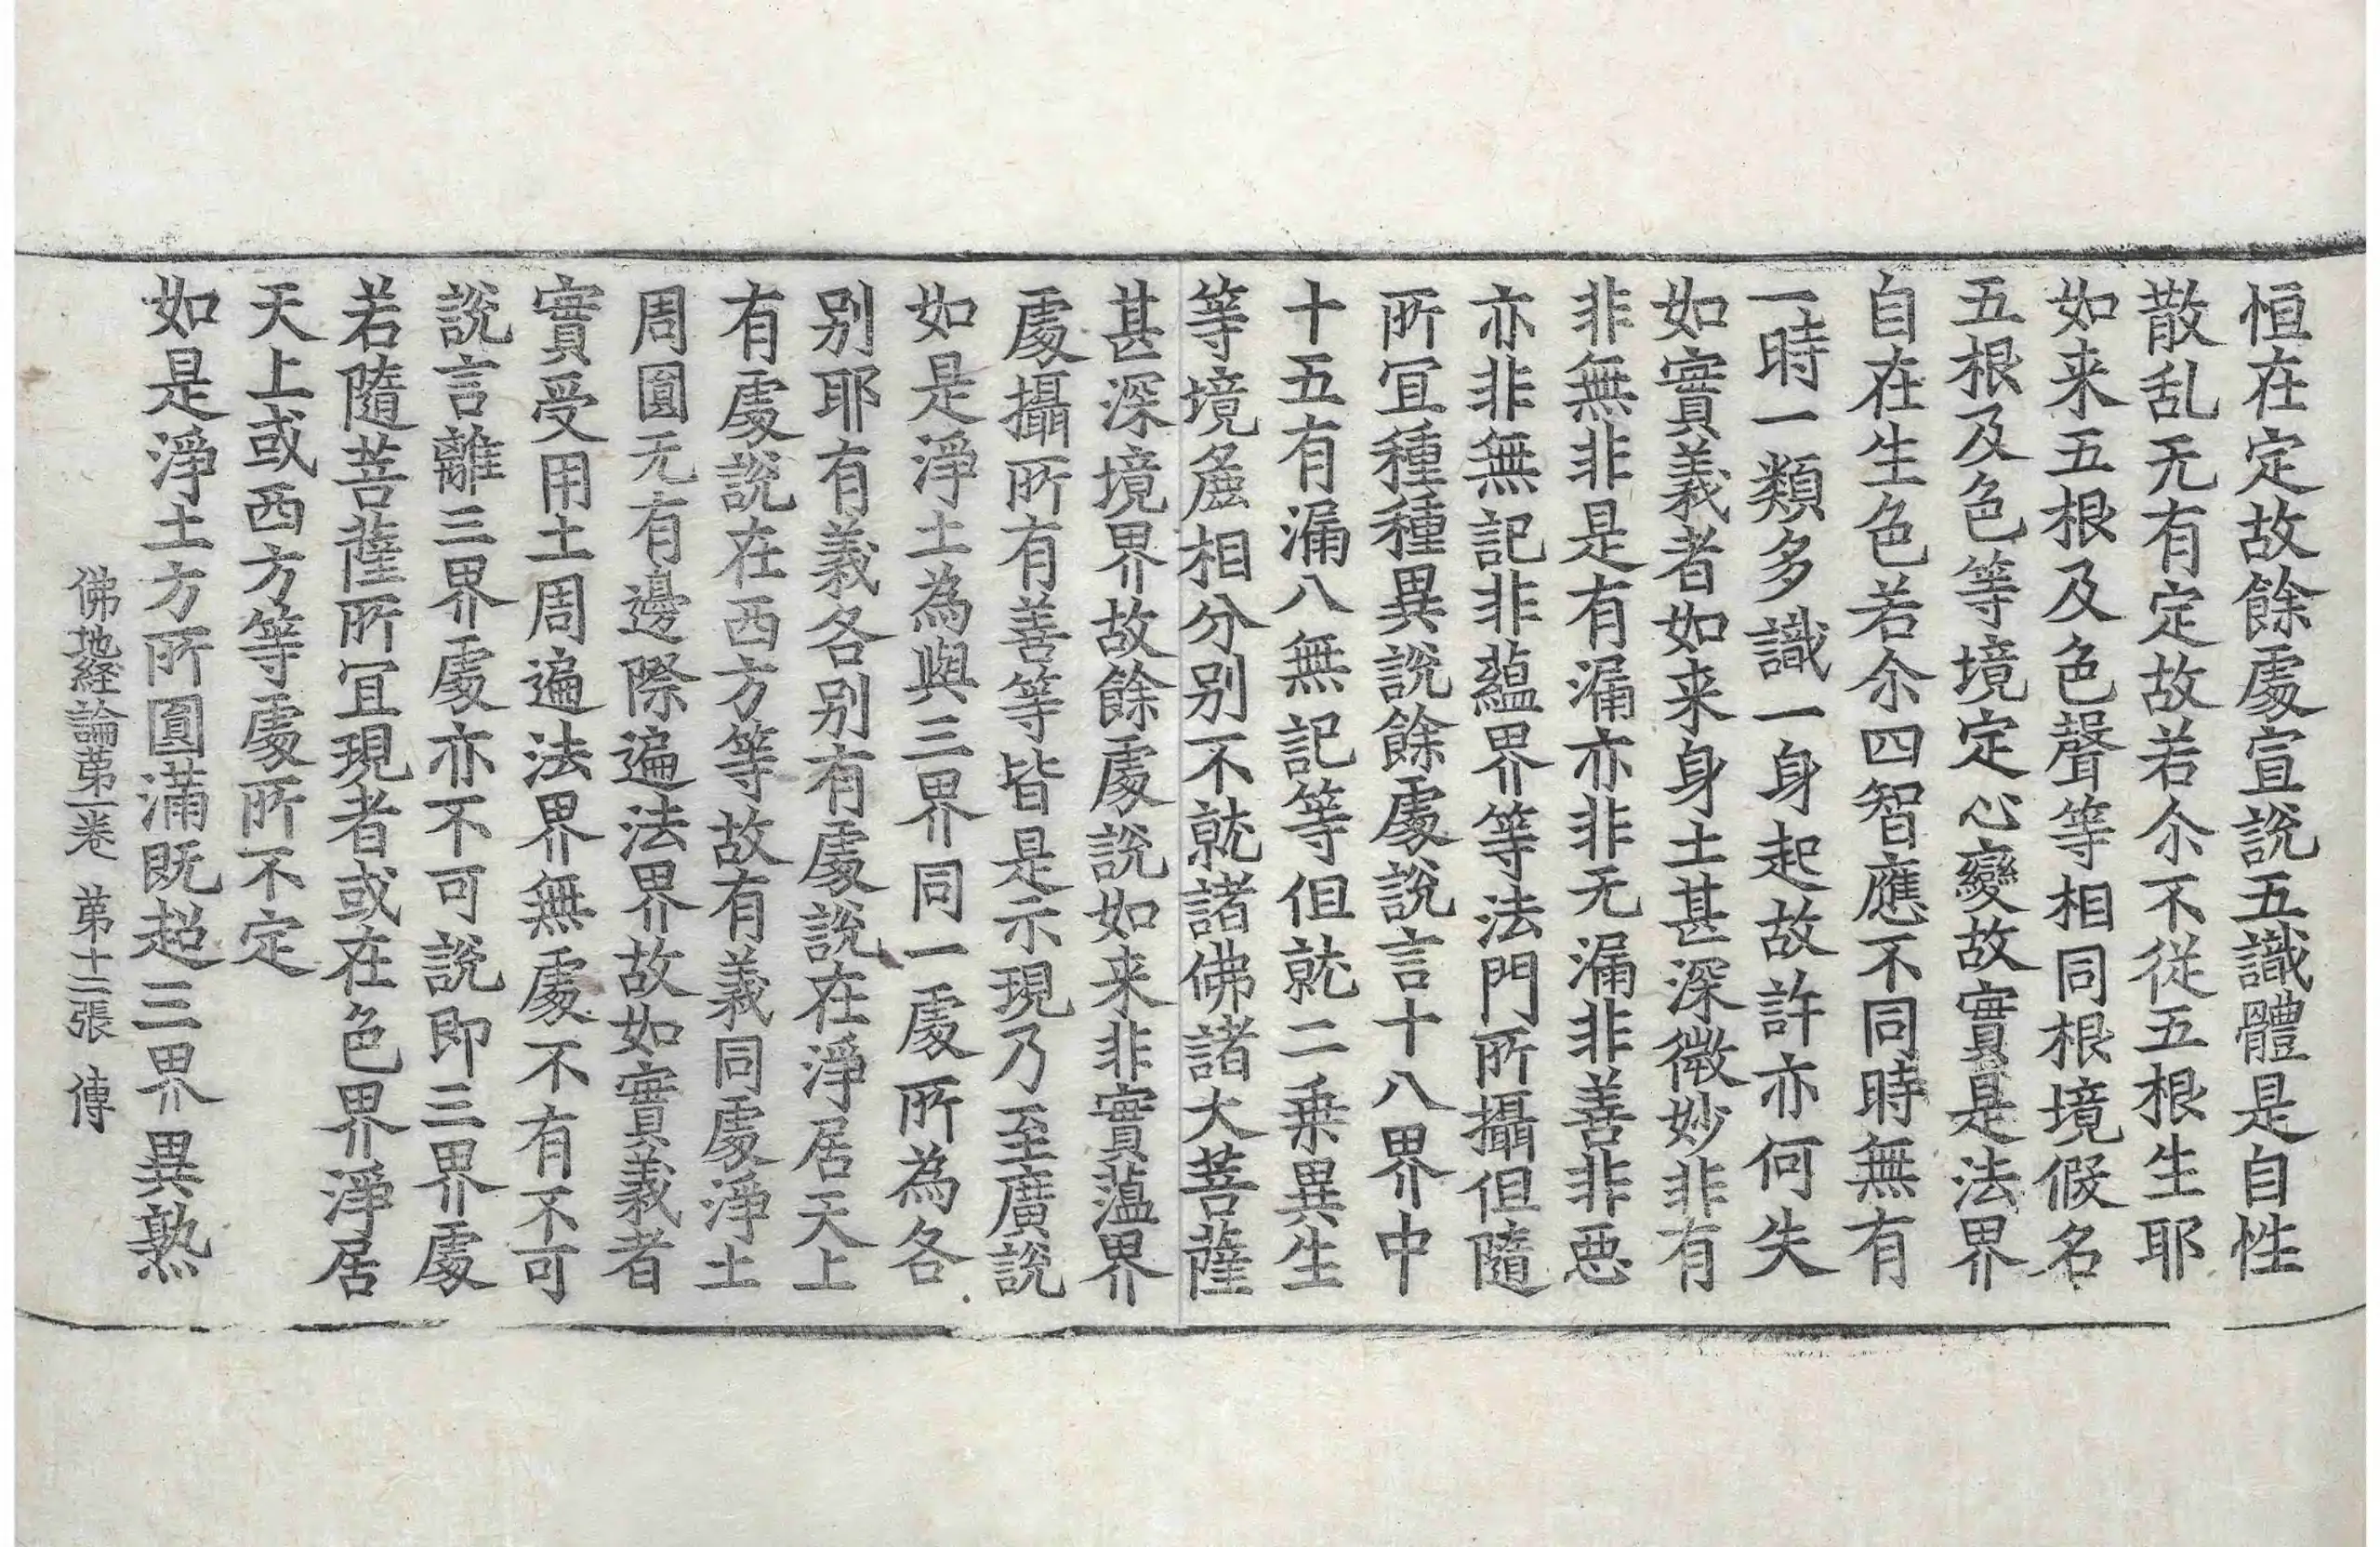 恒在定故餘處宣說五識體是自性
散乱无有定故若尒不從五根生耶
如来五根及色聲等相同根境假名
五根及色等境定心變故實是法界
自在生色若尒四智應不同時無有
一時一類多識一身起故許亦何失
如實義者如来身土甚深微妙非有
非無非是有漏亦非无漏非善非惡
亦非無記非蘊界等法門所攝但隨
所冝種種異說餘處說言十八界中
十五有漏八無記等但就二乗異生
等境麁相分别不就諸佛諸大菩薩
甚深境界故餘處說如来非實蕰界
處攝所有善等皆是示現乃至廣說
如是淨土為與三界同一處所為各
别耶有義各别有處說在淨居天上
有處說在西方等故有義同處淨土
周圓无有邊際遍法界故如實義者
實受用土周遍法界無處不有不可
說言離三界處亦不可說即三界處
若隨菩薩所冝現者或在色界淨居
天上或西方等處所不定
如是淨土方所圓滿既超三界異熟
佛地経論苐一卷 苐十二張 傳